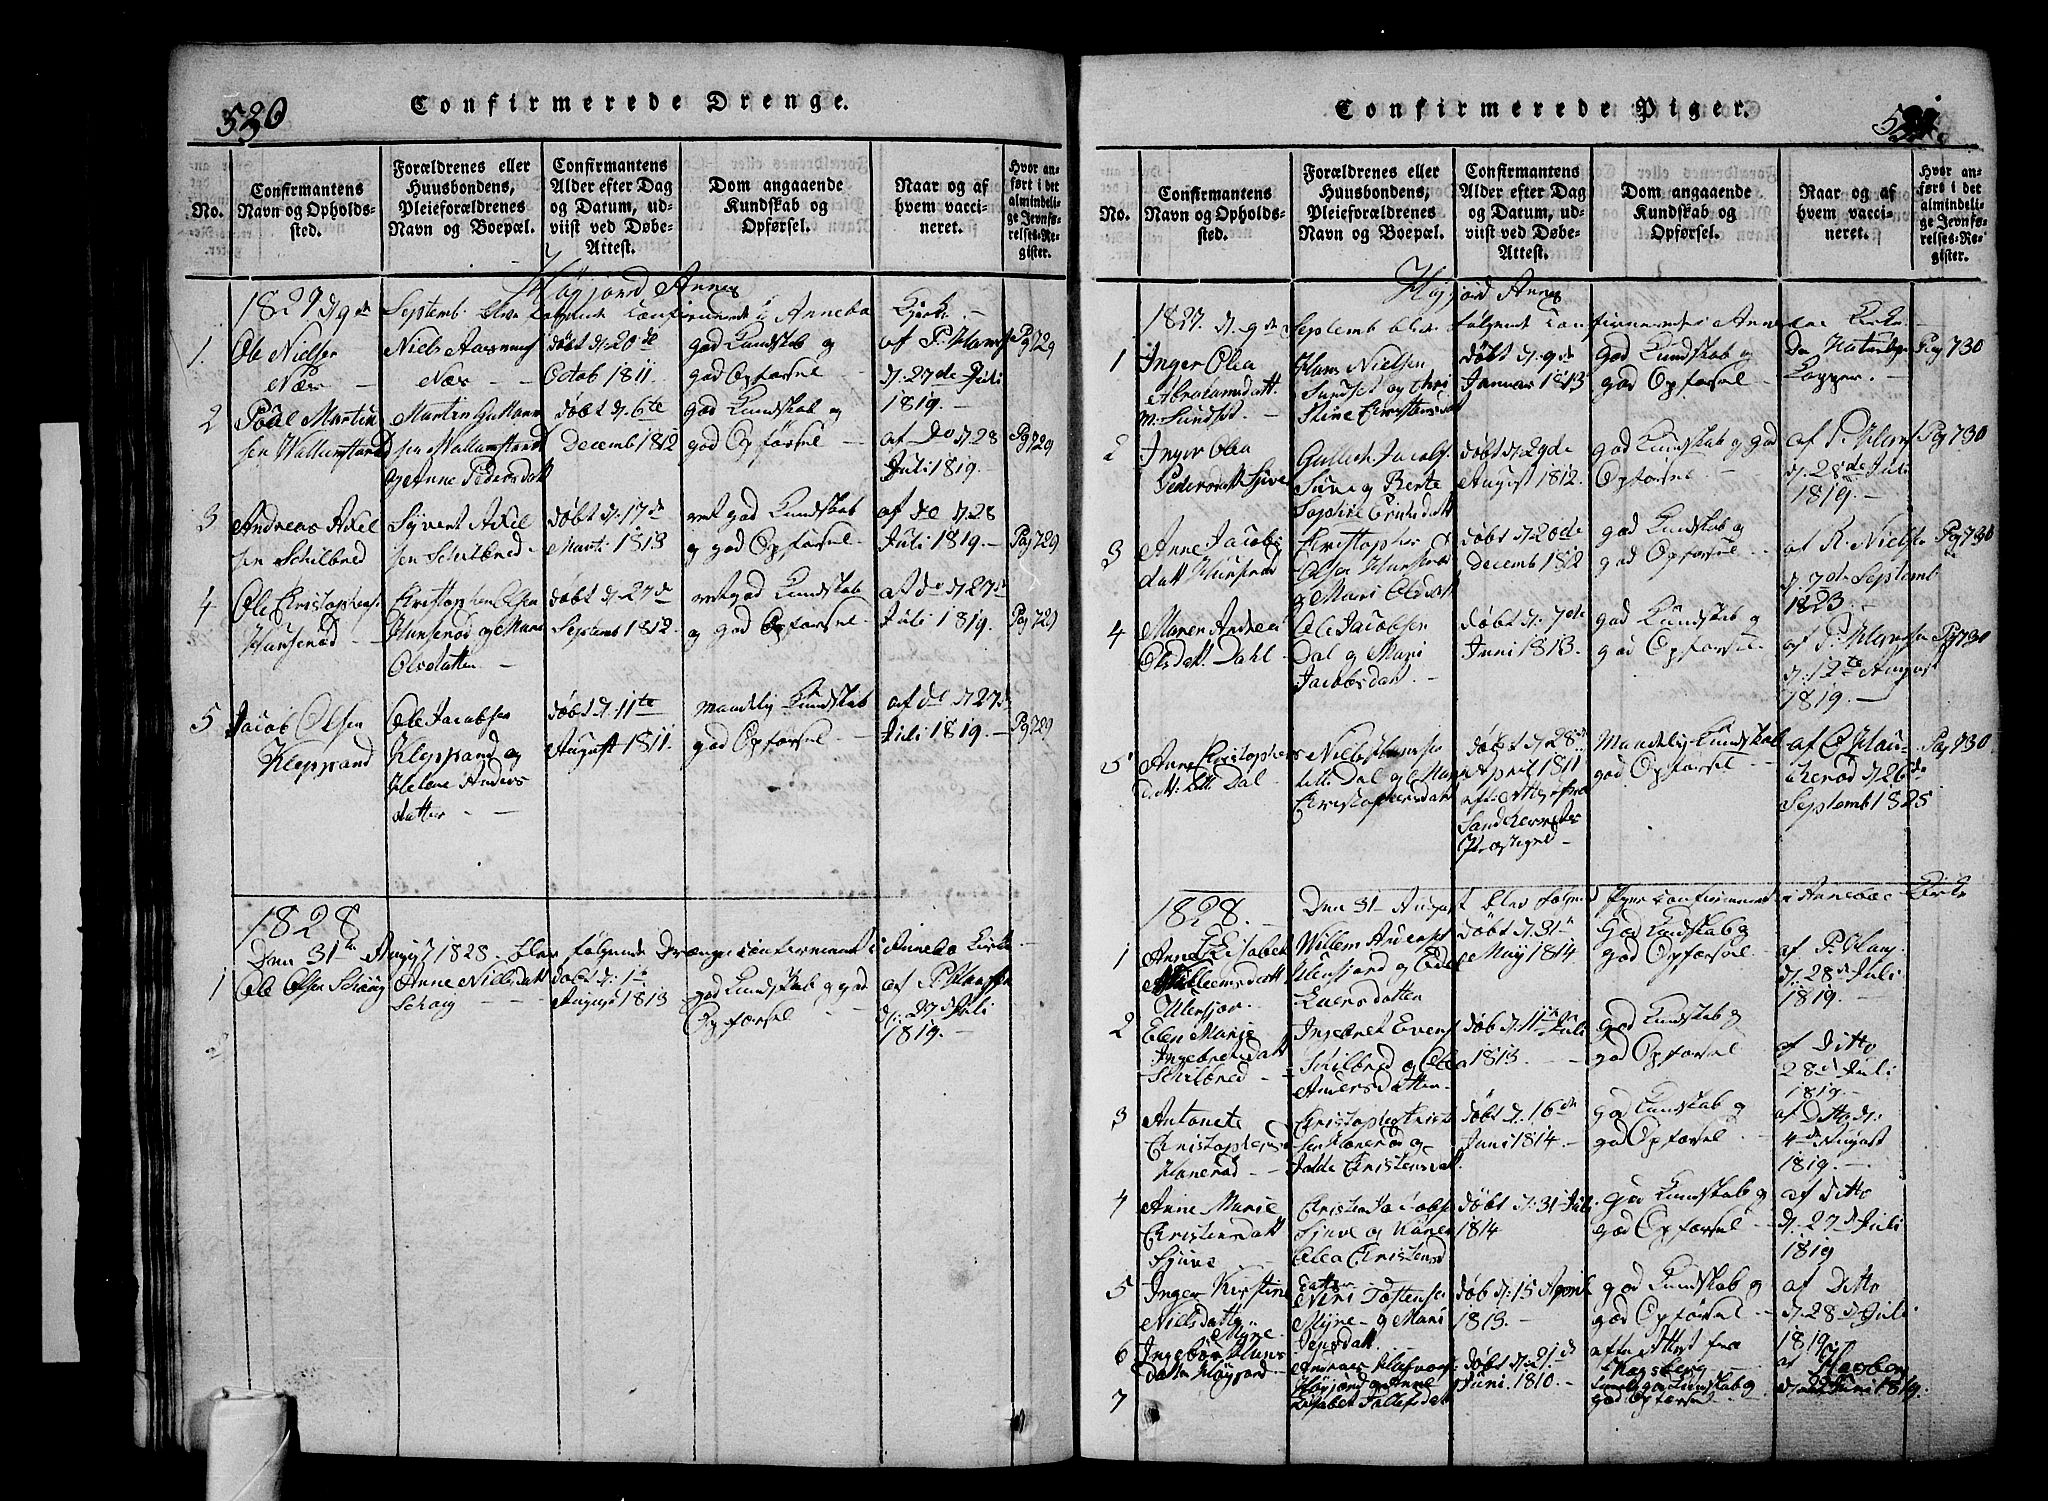 530
Confirmerede Drenge.
No.
Confirmantens Navn og Opholds-sted.
Forældrenes eller Huusbondens, Pleieforældrenes Navn og Boepæl.
Confirmantens Alder efter Dag og Datum, ud-viist ved Døbe-Attest.
Dom angaaende Kundskab og Opførsel.
Naar og af hvem vacci-neret.
Hvor an-ført i det almindeli-ge Jevnfø-relses-Re-gister.
1827 d. 9de Septemb. blev følgende Confirmerede i Annebo Kirke
1.
Ole Nielsen
Næs —
Niels
Næs —
døbt d. 20de
Octob 1811.
god Kundskab og
god Opførsel —
af P. Hansen
d. 27de Juli
1819. —
Pag 729
2
Poul Martin
sen Wallumstrand
Martin
sen Wallumstrand
og Anne Pedersdatt
døbt d. 6te
Decemb 1812
god Kundskab og
god Opførsel —
af do d. 28
Juli 1819. —
Pg 729
3
Andreas Axel
sen Schilbred
Syvert Axel
sen Schilbred —
døbt d. 17de
Marti 1813
ret god Kundskab
og god Opførsel —
af do d. 28
Juli 1819. —
Pag 729
4
Ole Christophers
Hanserød —
Christopher Olsen
Hanserød og Mari
Olsdatter —
døbt d. 27de
Septemb 1812.
ret god Kundskab
og god Opførsel —
af do d. 27de
Juli 1819. —
Pag 729
5
Jacob Olsen
Kleppand
Ole Jacobsen
Kleppand og
Helene Anders
datter —
døbt d. 11te
August 1811.
maadelig Kundskab
god Opførsel —
af do d. 27de
Juli 1819. —
Pag 729
1828
Den 31te August 1828. blev følgende Drenge confirmeret i Annebo Kirke
1
Ole Olsen Schoug
Anne Nielsdatt
Schoug —
døbt d. 1te
August 1813
god Kundskab og god
Opførsel —
af P. Hansen
d. 27de Juli
1819. —
2
Confirmerede Piger.
No.
Confirmantens Navn og Opholds-sted.
Forældrenes eller Huusbondens, Pleieforældrenes Navn og Boepæl.
Confirmantens Alder efter Dag og Datum, ud-viist ved Døbe-Attest.
Dom angaaende Kundskab og Opførsel.
Naar og af hvem vacci-neret.
Hvor an-ført i det almindeli-ge Jevnfø-relses-Re-gister.
1827. d. 9de Septemb blev følgende Confirmerede i Anneboe Kirke. —
1
Inger Olea
Abrahamsdatt.
Hans Nielsen
Sundset og Chri
stine Christensdatt
døbt d. 9de
Januar 1813
God Kundskab og
god Opførsel —
Kopper. —
Pag 730
2
Inger Olea
Pedersdatt Syve
Gulich Jacobs
Syve og Berte
Sophie
døbt d. 29de
August 1812.
god Kundskab og god
Opførsel —
af P. Hans
d. 28de Juli
1819. —
Pag 730
3
Anne Jacobs
datt Hanserød
Christopher
Olsen Hanserød
og Mari Olsdatt
døbt d. 20de
Decemb 1812
god Kundskab og
god Opførsel —
af R. Nielse
d. 7de Septemb
1823. —
Pag 730
4
Maren Andrea
Olsdatt. Dahl —
Ole Jacobsen
Dal og Mari
Jacobsdatt —
døbt d. 7de
Juni 1813. —
god Kundskab og
god Opførsel.
af P. Hansen
d. 12te August
1819. —
Pag 730
5
Anne Christophers
datt. Lille Dal —
Niels Hansen
lille Dal og Marie
Christophersdatt
døbt d. 28de
April 1811
efter Attest fra
Sandherreds
Præstegield —
Maadelig Kundskab
god Opførsel —
d. 26de
Septemb 1825
Pag 730
1828. —
Den 31 August blev følgende Piger confirmeret i Anneboe Kirke
1
Anne Elisabet
Willemsdatt
Ulensjor. —
Willem Anders
Ulensjord og Edel
Eversdatter
døbt d. 31te
May 1814
God Kundskab og
god Opførsel —
af P. Hans
d. 28de Juli
1819. —
2
Elen Marie
Ingebretsdatt
Schilbred —
Ingebret Evens
Schilbred og Olea
Andersdatter
døb d. 11te Juli
1813. —
god Kundskab og
god Opførsel —
af Ditto
28de Juli
1819. —
3
Antonete
Christophersd
Hanerød —
Christopher Christ
sen Hanerød og
Christensdatt.
døbt d. 16de
Juni 1814. —
god Kundskab og
god Opførsel —
af Ditto d.
4de August
1819. —
4
Anne Marie
Christensdatt
Syve —
Christen Jacobs
Syve og Karen
Olea Christens
datter
døbt d. 31 Juli
1814
god Kundskab og
god Opførsel —
af Ditto
d. 27de Juli
1819
5
Inger Kirstine
Nielsdatt
Myre —
Niri Tostensen
Myre — og Mari
Jensdatt.
døb d. 15 April
1813. —
god Kundskab og
god Opførsel —
af Ditto
d. 28de Juli
1819.
6
Ingebor Hans
datter Høyjord —
Høyjord og Anne
Lisabet Tollefsdatt
døbt d. 21de
Juni 1810. —
efter Attest fra
god Opførsel —
Juni 1819.
7